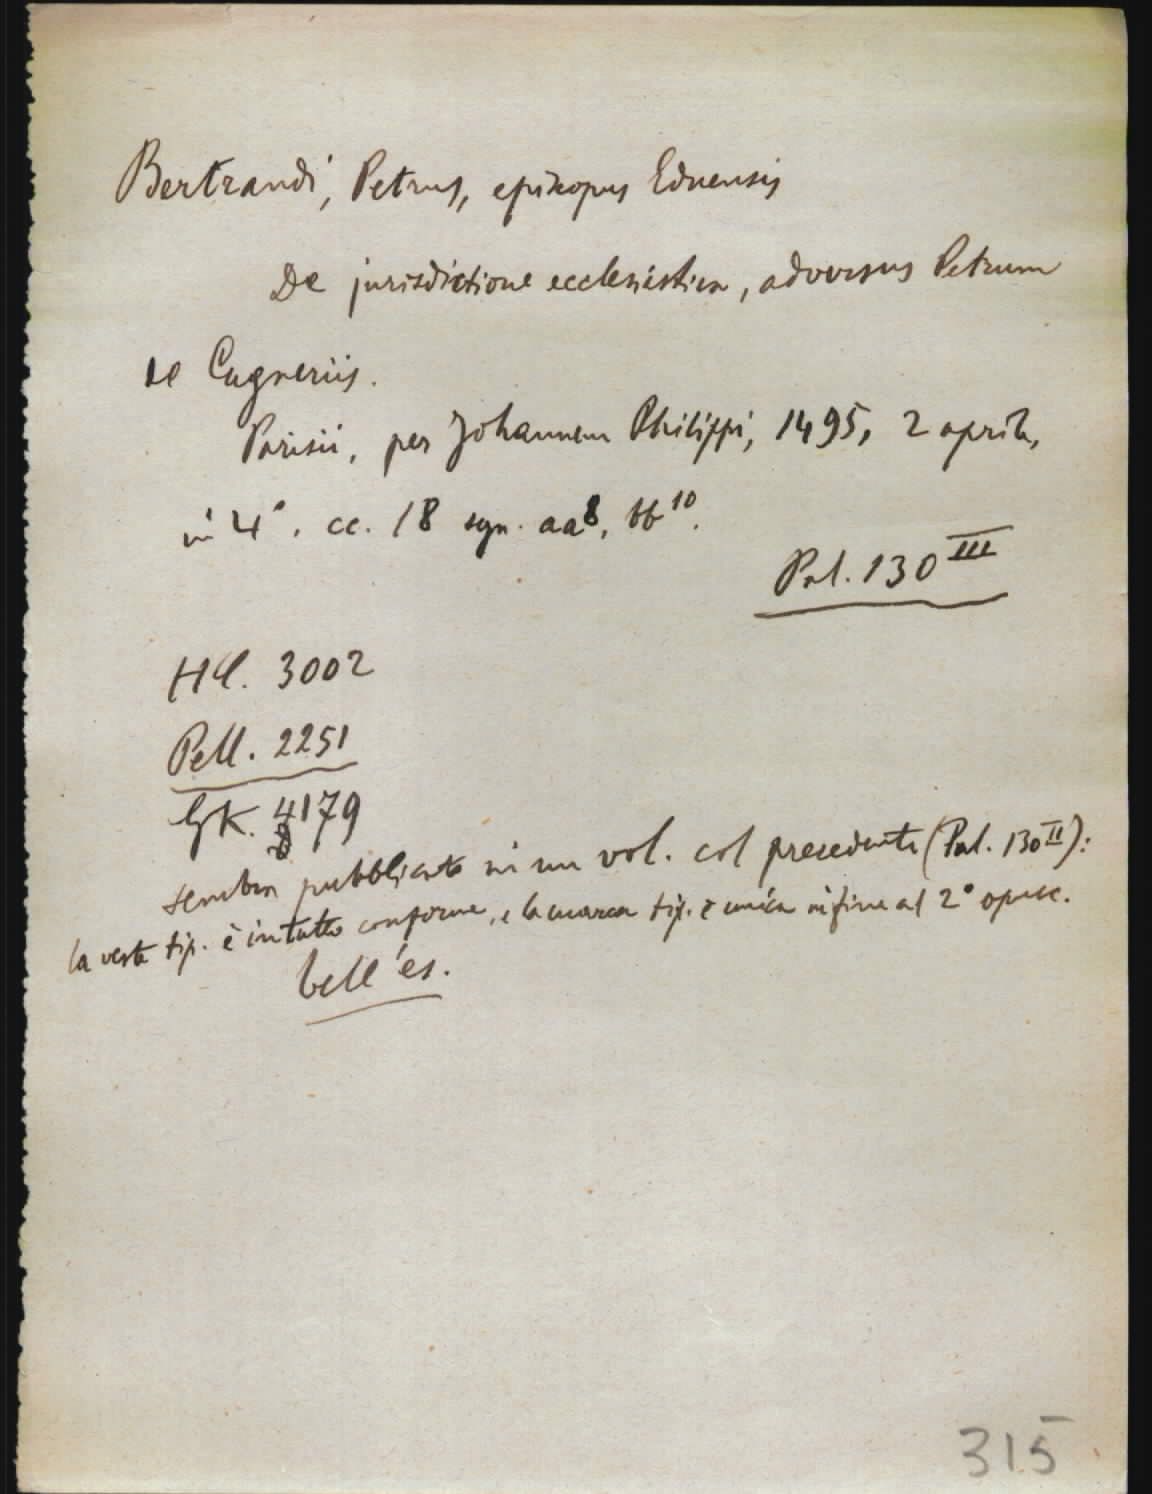 Bertrandi, Petrus, episcopus Eduensis
De jurisdictione ecclesiastica, adversus Petrum
de Cugneriis.
Parisii, per Johannem Philippi, 1495, 2 aprile,
in 4°. cc. 18 sgn. aa8, bb10.
Pal. 130 III
HC. 3002
Pell. 2251
GK. 4179
8
sembra pubblicato in un vol. col precedente (Pal. 130 II):
la veste tip. è in tutto conforme, e la marca tip. è unica in fine al 2° opusc.
bell'es.
315